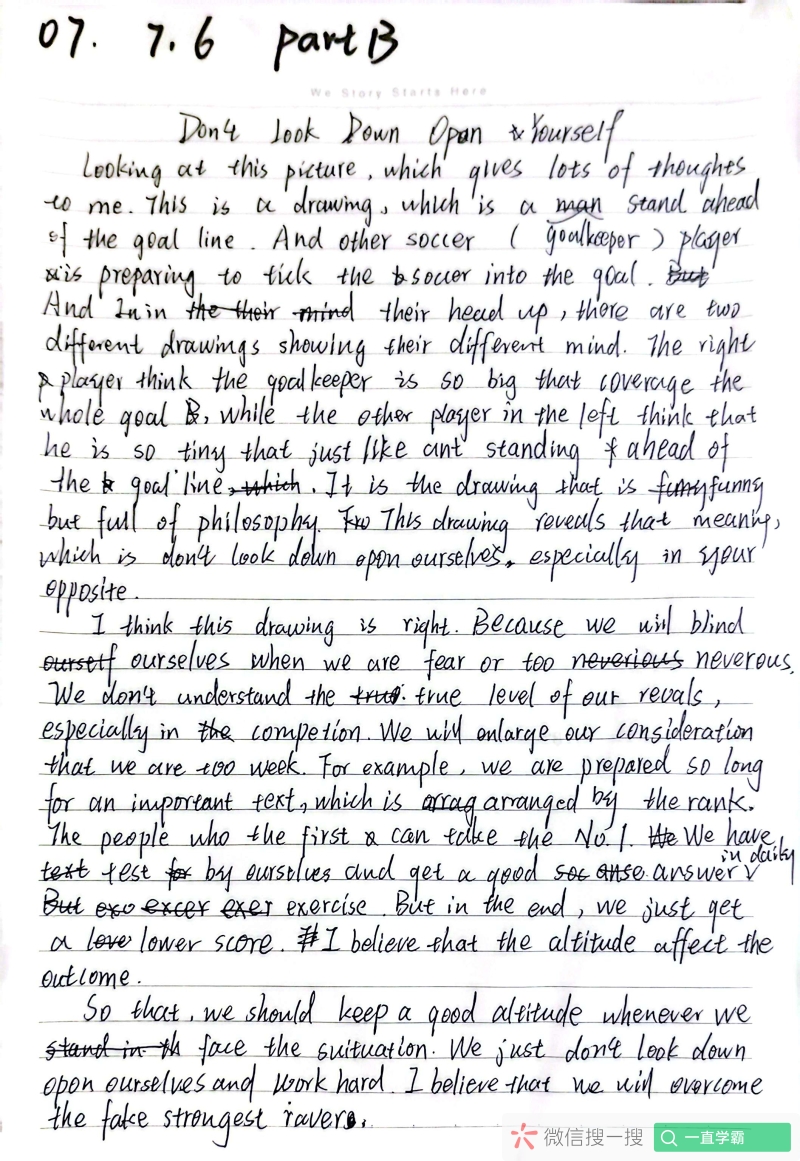 07. 7.6 part B
We Story Starts Here
Don't Look Down Opon Yourself
Looking at this picture, which gives lots of thoughts
to me. This is a drawing, which is a man stand ahead
of the goal line. And other soccer (goalkeeper) player
is preparing to tick the soccer into the goal. But
And In in the their mind their head up, there are two
different drawings showing their different mind. The right
player think the goalkeeper is so big that coverage the
whole goal, while the other player in the left think that
he is so tiny that just like ant standing ahead of
the goal line, which. It is the drawing that is funny funny
but full of philosophy. This drawing reveals that meaning,
which is don't look down opon ourselves, especially in your
opposite.
I think this drawing is right. Because we will blind
ourself ourselves when we are fear or too neverious neverous.
We don't understand the true. true level of our revals,
especially in the competion. We will enlarge our consideration
that we are too week. For example, we are prepared so long
for an important text, which is arrag arranged by the rank.
The people who the first can take the No.1. We have
text test for by ourselves and get a good answer in daily
But exo excer exer exercise. But in the end, we just get
a love lower score. I believe that the altitude affect the
outcome.
So that, we should keep a good altitude whenever we
stand in th face the suituation. We just don't look down
opon ourselves and work hard. I believe that we will overcome
the fake strongest ravers.
微信搜一搜 一直学霸